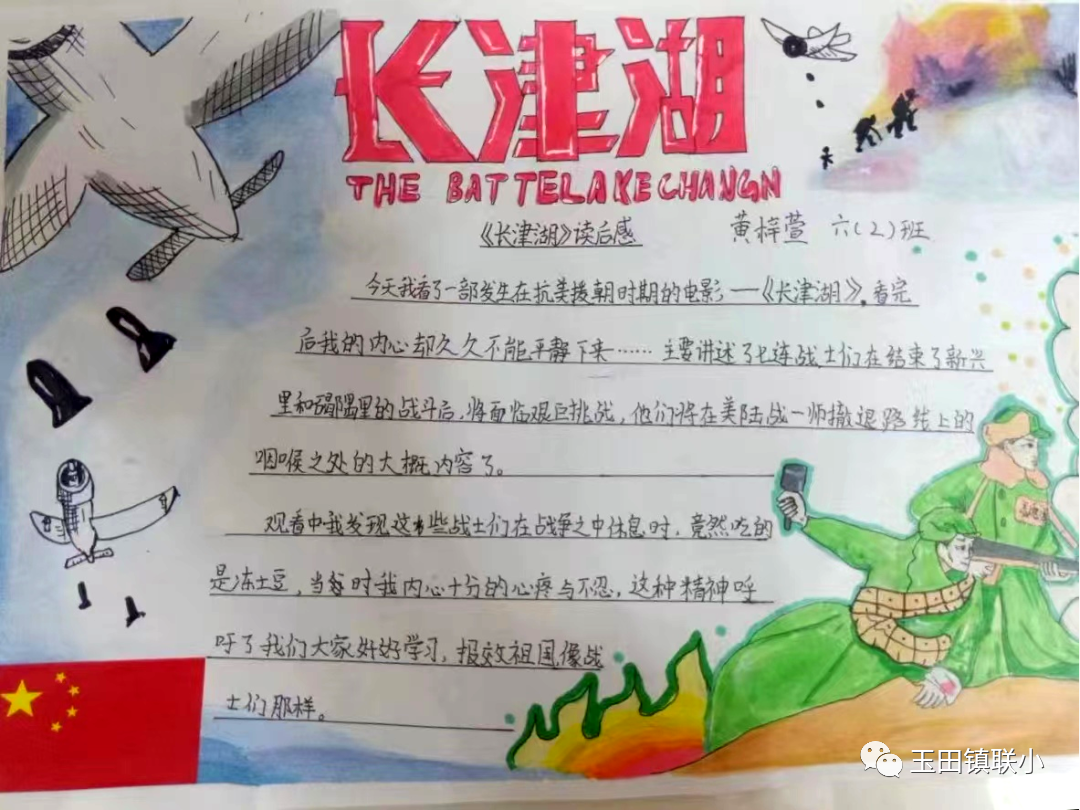 长津湖
THE BATTELAKECHANGN
《长津湖》读后感
黄梓萱 六(2)班
今天我看了一部发生在抗美援朝时期的电影—《长津湖》。看完
后我的内心却久久不能平静下来…… 主要讲述了七连战士们在结束了新兴
里和碣隅里的战斗后，将面临艰巨挑战，他们将在美陆战一师撤退路线上的
咽喉之处的大概内容了。
观看中我发现这些战士们在战争之中休息时，竟然吃的
是冻土豆，当时我内心十分的心疼与不忍，这种精神呼
吁了我们大家好好学习，报效祖国像战
士们那样。
玉田镇联小